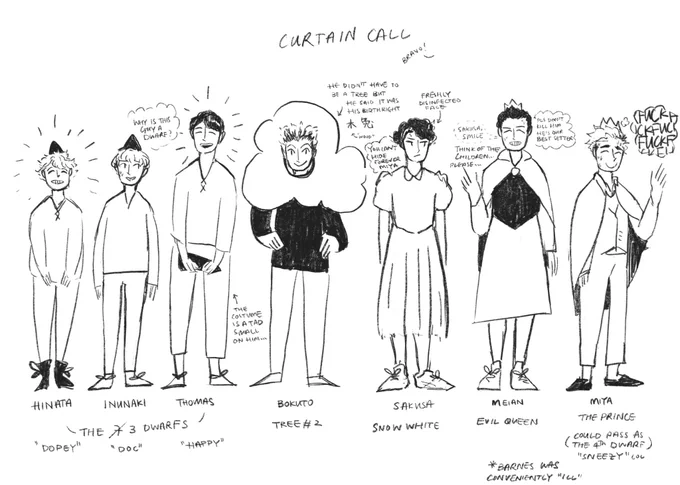 CURTAIN CALL
BRAVO!
WHY IS THIS
GUY A
DWARF?
HE DIDN'T HAVE TO
BE A TREE BUT
HE SAID IT WAS
HIS BIRTHRIGHT
木兎
FRESHLY
DISINFECTED
FACE
YOU CAN'T
HIDE
FOREVER
MIYA
SAKUSA,
SMILE
THINK OF THE
CHILDREN...
PLEASE...
PLS DON'T
KILL HIM
HE'S OUR
BEST SETTER
(FUCKF
UCKFUCK
(FUCKF
UCK)
THE
COSTUME
IS A TAD
SMALL
ON HIM...
HINATA
INUNAKI
THOMAS
BOKUTO
SAKUSA
MEIAN
MIYA
THE 7 3 DWARFS
"DOPEY"
"DOC"
"HAPPY"
TREE #2
SNOW WHITE
EVIL QUEEN
THE PRINCE
(COULD PASS AS
THE 4TH DWARF)
"SNEEZY" LOL
*BARNES WAS
CONVENIENTLY "ILL"